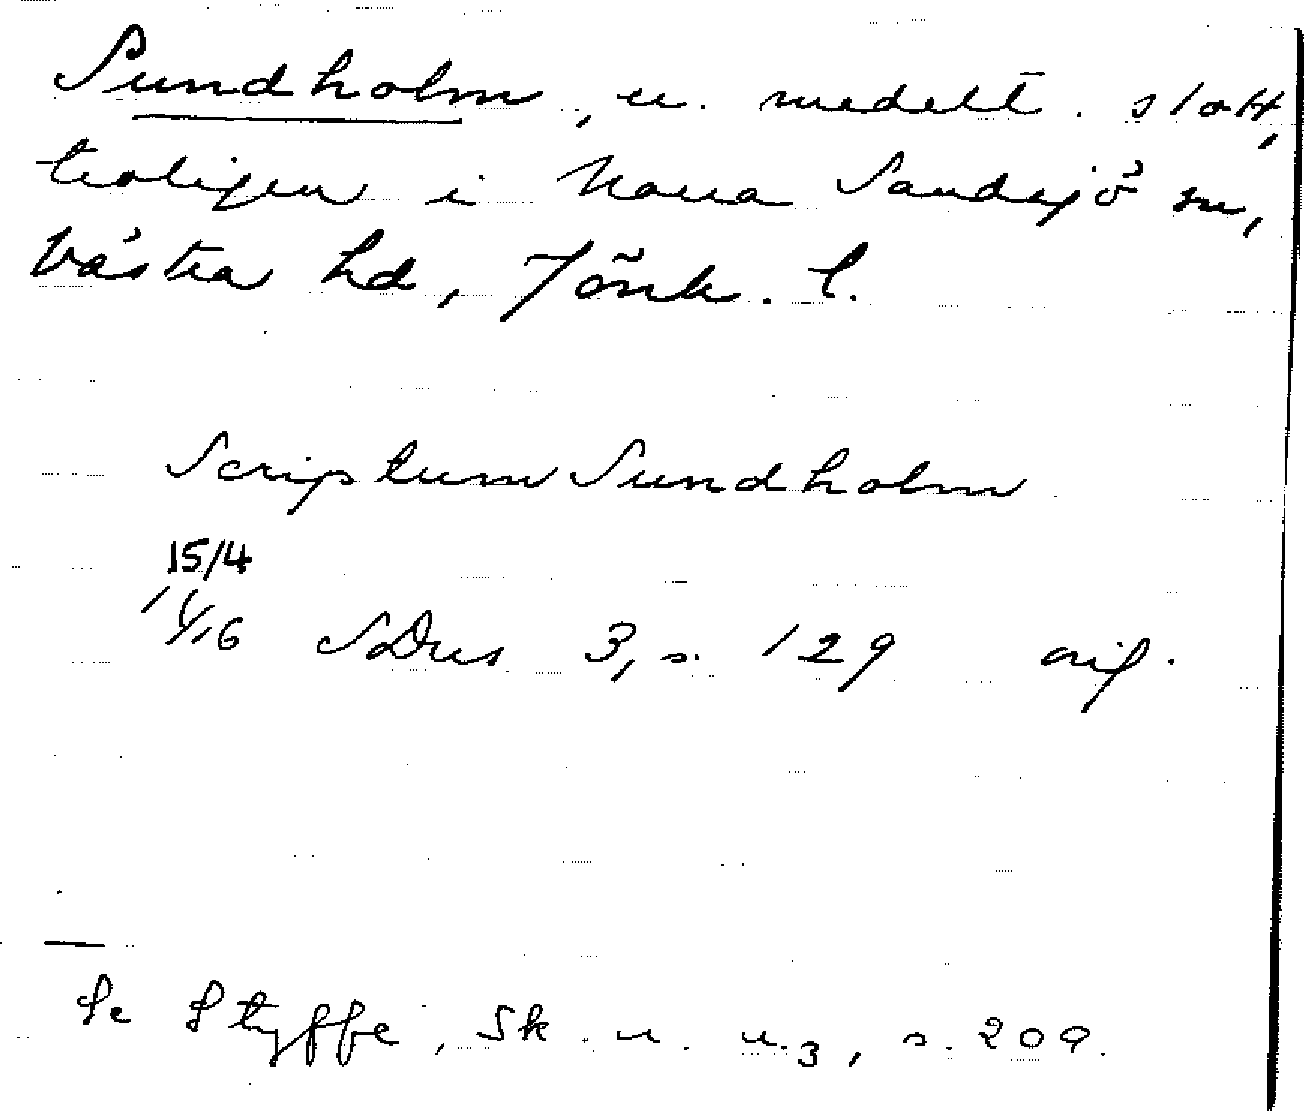 Sundholm, n. medelt. slott,
troligen i Norra Sandsjö sn,
Västra hd, Jönk. l.
Scriptum Sundholm
15/4
1416 SDns 3, s. 129 orig.
Se Styffe, Sk. u. u. 3, s. 209.